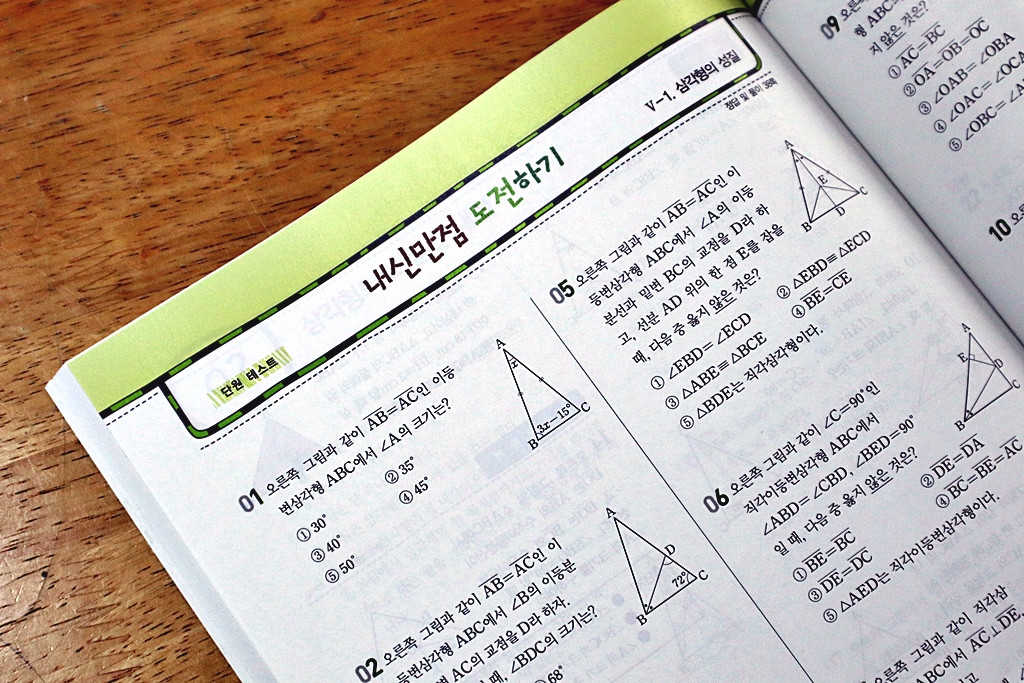 V-1. 삼각형의 성질
정답 및 풀이 38쪽
내신만점 도전하기
단원 테스트
01 오른쪽 그림과 같이 AB=AC인 이등
변삼각형 ABC에서 ∠A의 크기는?
① 30°
② 35°
③ 40°
④ 45°
⑤ 50°
A
x
3x-15°
B
C
02 오른쪽 그림과 같이 AB=AC인 이
등변삼각형 ABC에서 ∠B의 이등분
AC의 교점을 D라 하자.
때, ∠BDC의 크기는?
68°
A
D
72°
B
C
05 오른쪽 그림과 같이 AB=AC인 이
등변삼각형 ABC에서 ∠A의 이등
분선과 밑변 BC의 교점을 D라 하
고, 선분 AD 위의 한 점 E를 잡을
때, 다음 중 옳지 않은 것은?
① ∠EBD=∠ECD
② △EBD≡△ECD
③ △ABE≡△BCE
④ BE=CE
⑤ △BDE는 직각삼각형이다.
A
E
B
D
C
06 오른쪽 그림과 같이 ∠C=90°인
직각이등변삼각형 ABC에서
∠ABD=∠CBD, ∠BED=90°
일 때, 다음 중 옳지 않은 것은?
① BE=BC
② DE=DA
③ DE=DC
④ BC=BE=AC
⑤ △AED는 직각이등변삼각형이다.
A
E
B
오른쪽 그림과 같이 직각삼
ABC에서 AC⊥DE,
09 오른
형 ABC
지 않은 것은?
① AC=BC
② OA=OB=OC
③ ∠OAB=∠OBA
④ ∠OAC=∠OCA
⑤ ∠OBC=∠
10 오